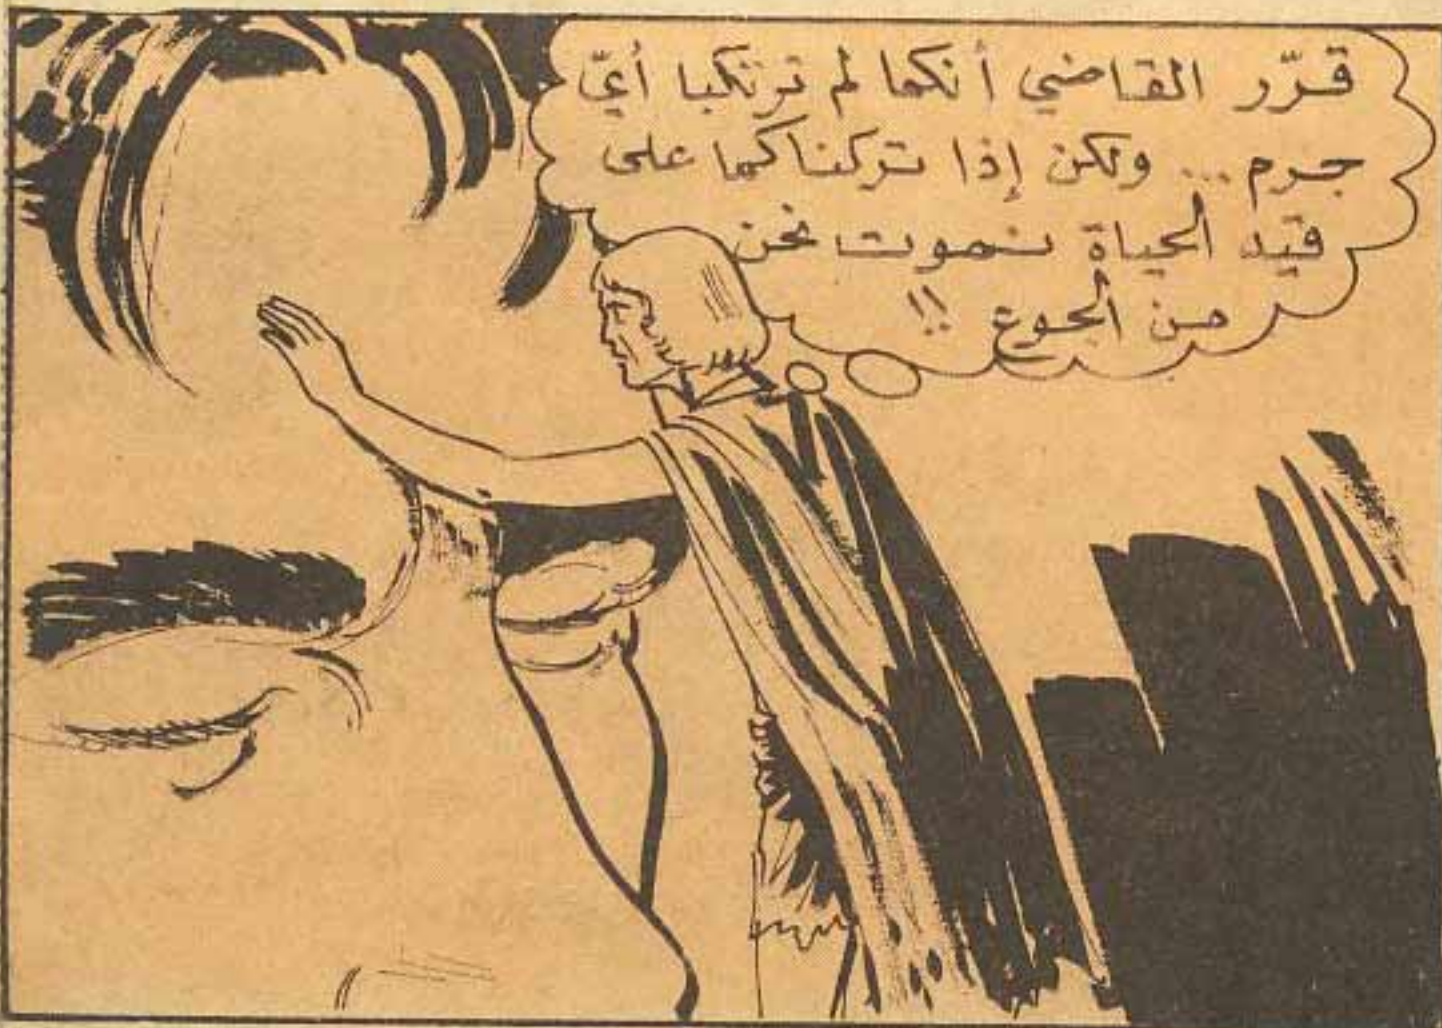 قرّر القاضي أنكما لم ترتكبا أيّ
جرم ... ولكن إذا تركناكما على
قيد الحياة نموت نحن
من الجوع !!